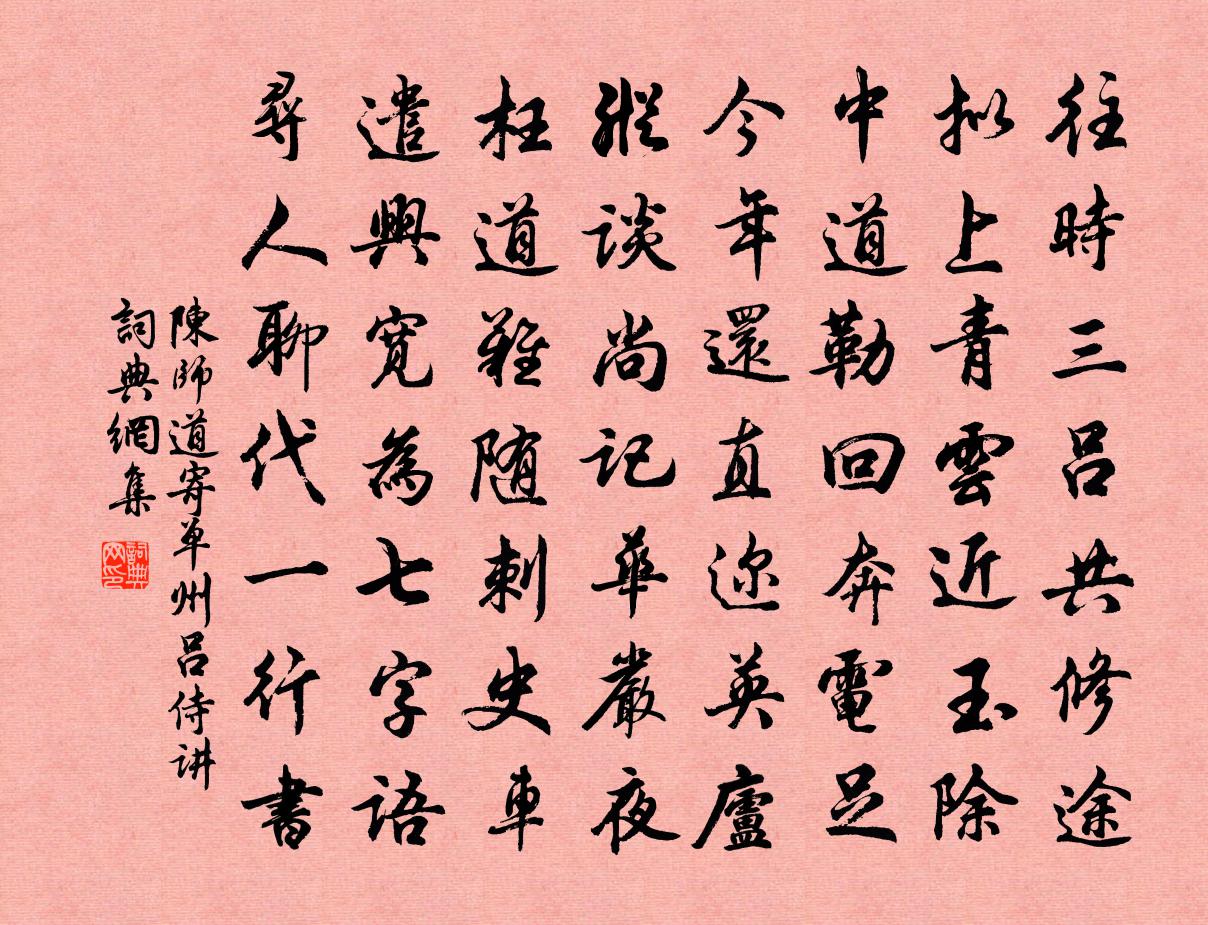 往時三呂共修途
拟上青雲近玉除
中道勒回奔電足
今年還直迩英廬
縱談尚记華嚴夜
枉道難随刺史車
遣興寛為七字語
尋人聊代一行書
陳師道寄单州呂侍讲
詞典網集
詞典网印